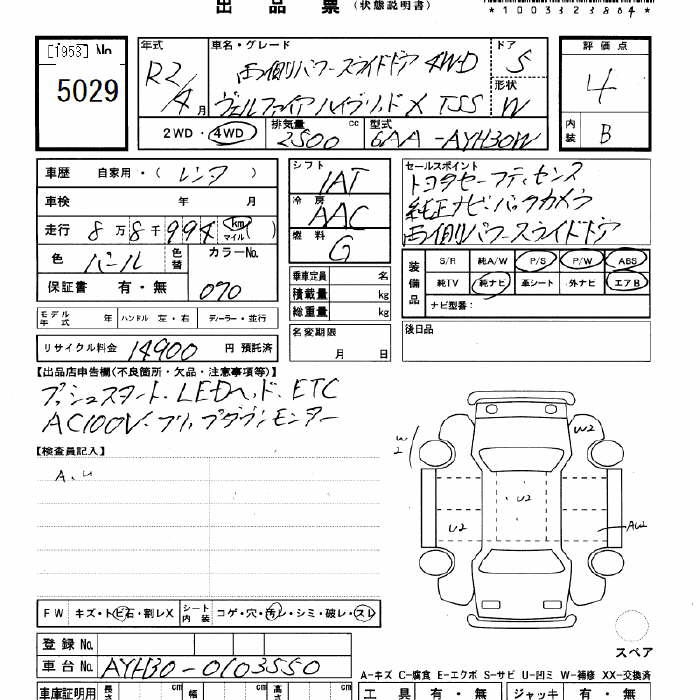 出品票 (状態説明書)
*1003323884*
[1953] No
5029
年式 R2/4月
車名・グレード 両側パワースライドドア 4WD
ヴェルファイアハイブリッド X TSS
ドア 5
形状 W
評価点 4
内装 B
2WD・4WD
排気量 2500 cc
型式 6AA-AYH30W
車歴 自家用・(レンタ)
車検 年 月
走行 8万8千994 km マイル
色 パール 色替 カラーNo.
保証書 有・無 070
シフト IAT
冷房 AAC
燃料 G
セールスポイント
トヨタセーフティセンス
純正ナビ・バックカメラ
両側パワースライドドア
装備品 S/R 純A/W P/S P/W ABS
純TV 純ナビ 革シート 外ナビ エアB
ナビ型番:
乗車定員 名
積載量 kg
総重量 kg
モデル年式 年 ハンドル 左・右 ディーラー・並行
名変期限 月 日
後日品
リサイクル料金 14900 円 預託済
【出品店申告欄(不良箇所・欠品・注意事項等)】
プッシュスタート、LEDヘッド、ETC
AC100V、フリップダウンモニター
【検査員記入】
A、U
W2
W2
U2
U2
AW2
FW キズ・トビ石・割レX シート内装 コゲ・穴・汚レ・シミ・破レ・スレ
スペア
登録No.
車台No. AYH30-0103550
A-キズ C-腐食 E-エクボ S-サビ U-凹ミ W-補修 XX-交換済
車庫証明用 長さ cm 幅 cm 高さ cm
工具 有・無 ジャッキ 有・無